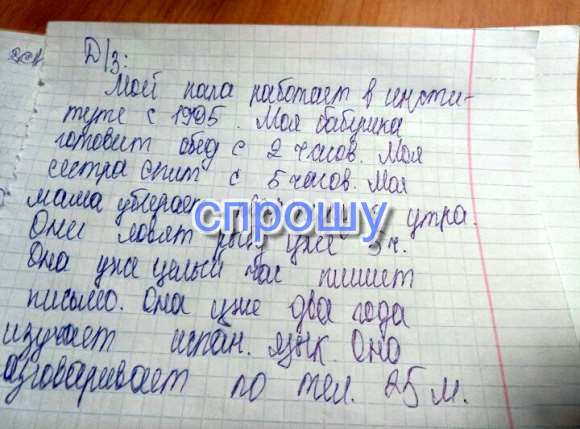 Д/З:
Мой папа работает в инсти-
туте с 1995. Моя бабушка
готовит обед с 2 часов. Моя
сестра спит с 5 часов. Моя
мама убирает утра.
спрошу
Они ловят рыбу уже 3 ч.
Она уже целый час пишет
письмо. Она уже два года
изучает испан. язык. Она
азговаривает по тел. 25 м.